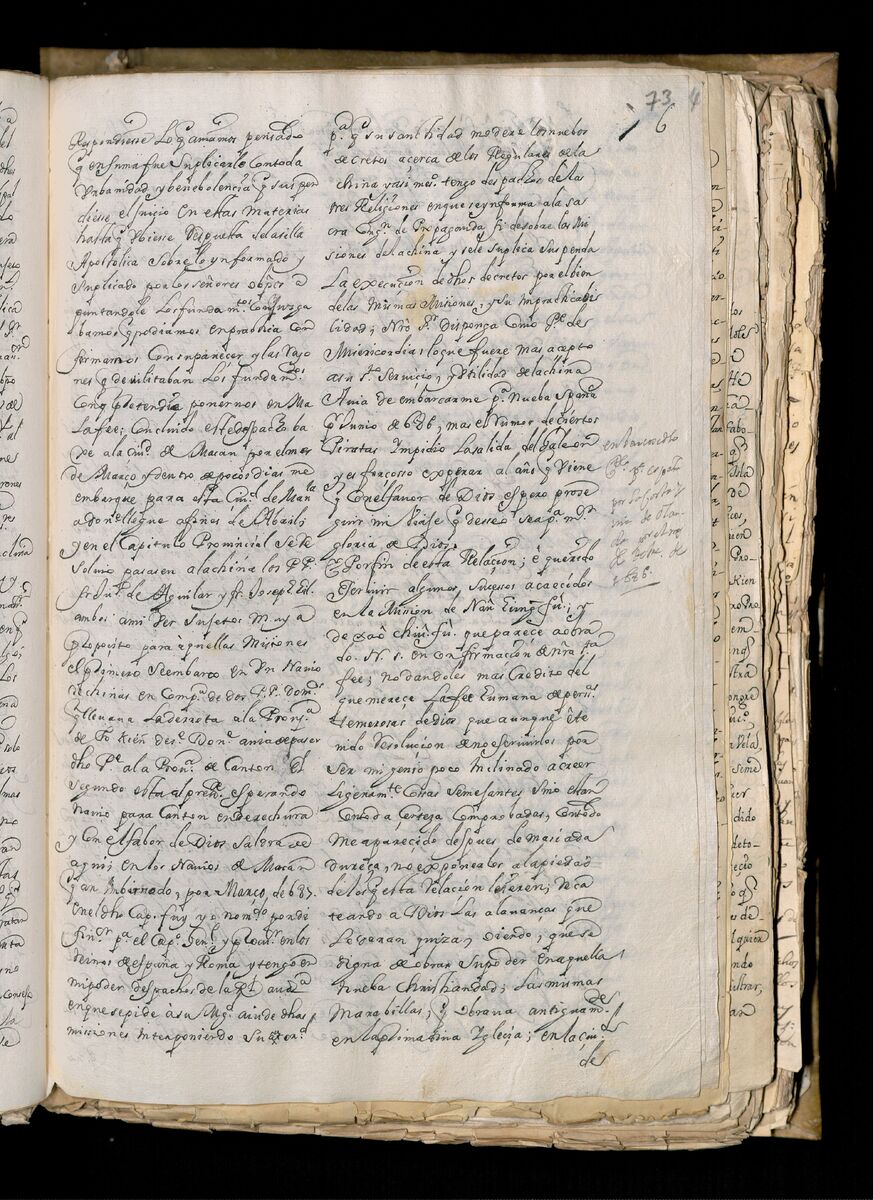 73
6
Respondiesse Lo q aviamos pensado
q en suma fue suplicarle con toda
Urbanidad y benebolencia q suspen
diesse el juicio En estas materias
hasta q Ubiesse Respuesta de la silla
Apostolica sobre lo ynformado y
suplicado por los señores obispos
guntandole Los fundamtos con q juzga
bamos q podiamos en practica con
formarnos Con su parecer y las Razo
nes q devilitaban Los fundamtos
Con q pretendia ponernos en Ma
La fee; Concluido este despacho ba
xe a la Ciud de Macan por el mes
de Março y dentro de pocos dias me
embarque para esta Ciud de Manla
adonde llegue a fines de Abril;
y en el Capitulo Provincial se Re
solvio pasasen a la china los P.P.
fr Juo de Aguilar y fr Joseph
ambos a mi Ver sujetos Muy a
proposito para aquellas Misiones
el primero se embarco en Un Navio
de chinas en Compa de dos P.P. Domos
q llevava La derrota a la Prova
de Fo Kien
dho Pe a la Prova de Canton El
segundo esta al presente esperando
navio para Canton en derechura
y Con el fabor de Dios saldra de
aqui; en los Navios de Macan
q an Imbernado, por Março, de 687.
En el dho Capo fuy yo nomdo por di
finor pa el Capo Genl y procur en los
Reinos de españa y Roma y tengo en
mi poder despachos de la Rl auda
en que se pide a su Mgd aiude dhas
missiones Interponiendo su autord
pa q su santidad modere los nuebos
decretos acerca de los Regulares de la
china y assi mesmo tengo despachos de las
tres Religiones en que se ynforma a la sa
cra Congon de Propaganda fide sobre las Mi
siones de la china y se le suplica suspenda
La execucion de dhos decretos por el bien
de las Mismas Misiones, y su impracticabi
lidad; Nro Sr Disponga Como Pe de
Misericordias lo que fuere mas acepto
a su sto servicio, y utilidad de la china
Avia de embarcarme pa Nueba España
q Junio de 686, mas el Rumor de ciertos
Piratas Impidio La salida del Galeon
y es forcosso esperar al año q Viene
q Con el favor de Dios espero prose
guir mi Viaje q deseo sea pa mr
gloria de Dios.
Por fin de esta Relacion; e querido
escrivir algunos sucessos acaecidos
en la Mission de Nan King fu; y
de çao chiu fu. que parece a obra
do N. S. en confirmacion de nra sta
fee; no dandoles mas Credito del
que merece La fee Umana de persas
temerosas de Dios que aunque e te
nido Resolucion de no escrivirlos por
ser mi genio poco Inclinado a creer
ligeramte cosas semejantes sino estan
Con toda Certeza Comprobadas; con todo
me a parecido despues demasiada
dureça, no exponerlos a la piedad
de los q esta Relacion leyeren; deca
teando a Dios Las alavanças que
Le daran quiza, Viendo, que se
digna de obrar su poder En aquella
Nueba Christiandad; Las mismas
Marabillas; q obrava antiguamte
en la primatiba Yglecia; en la ciud
de